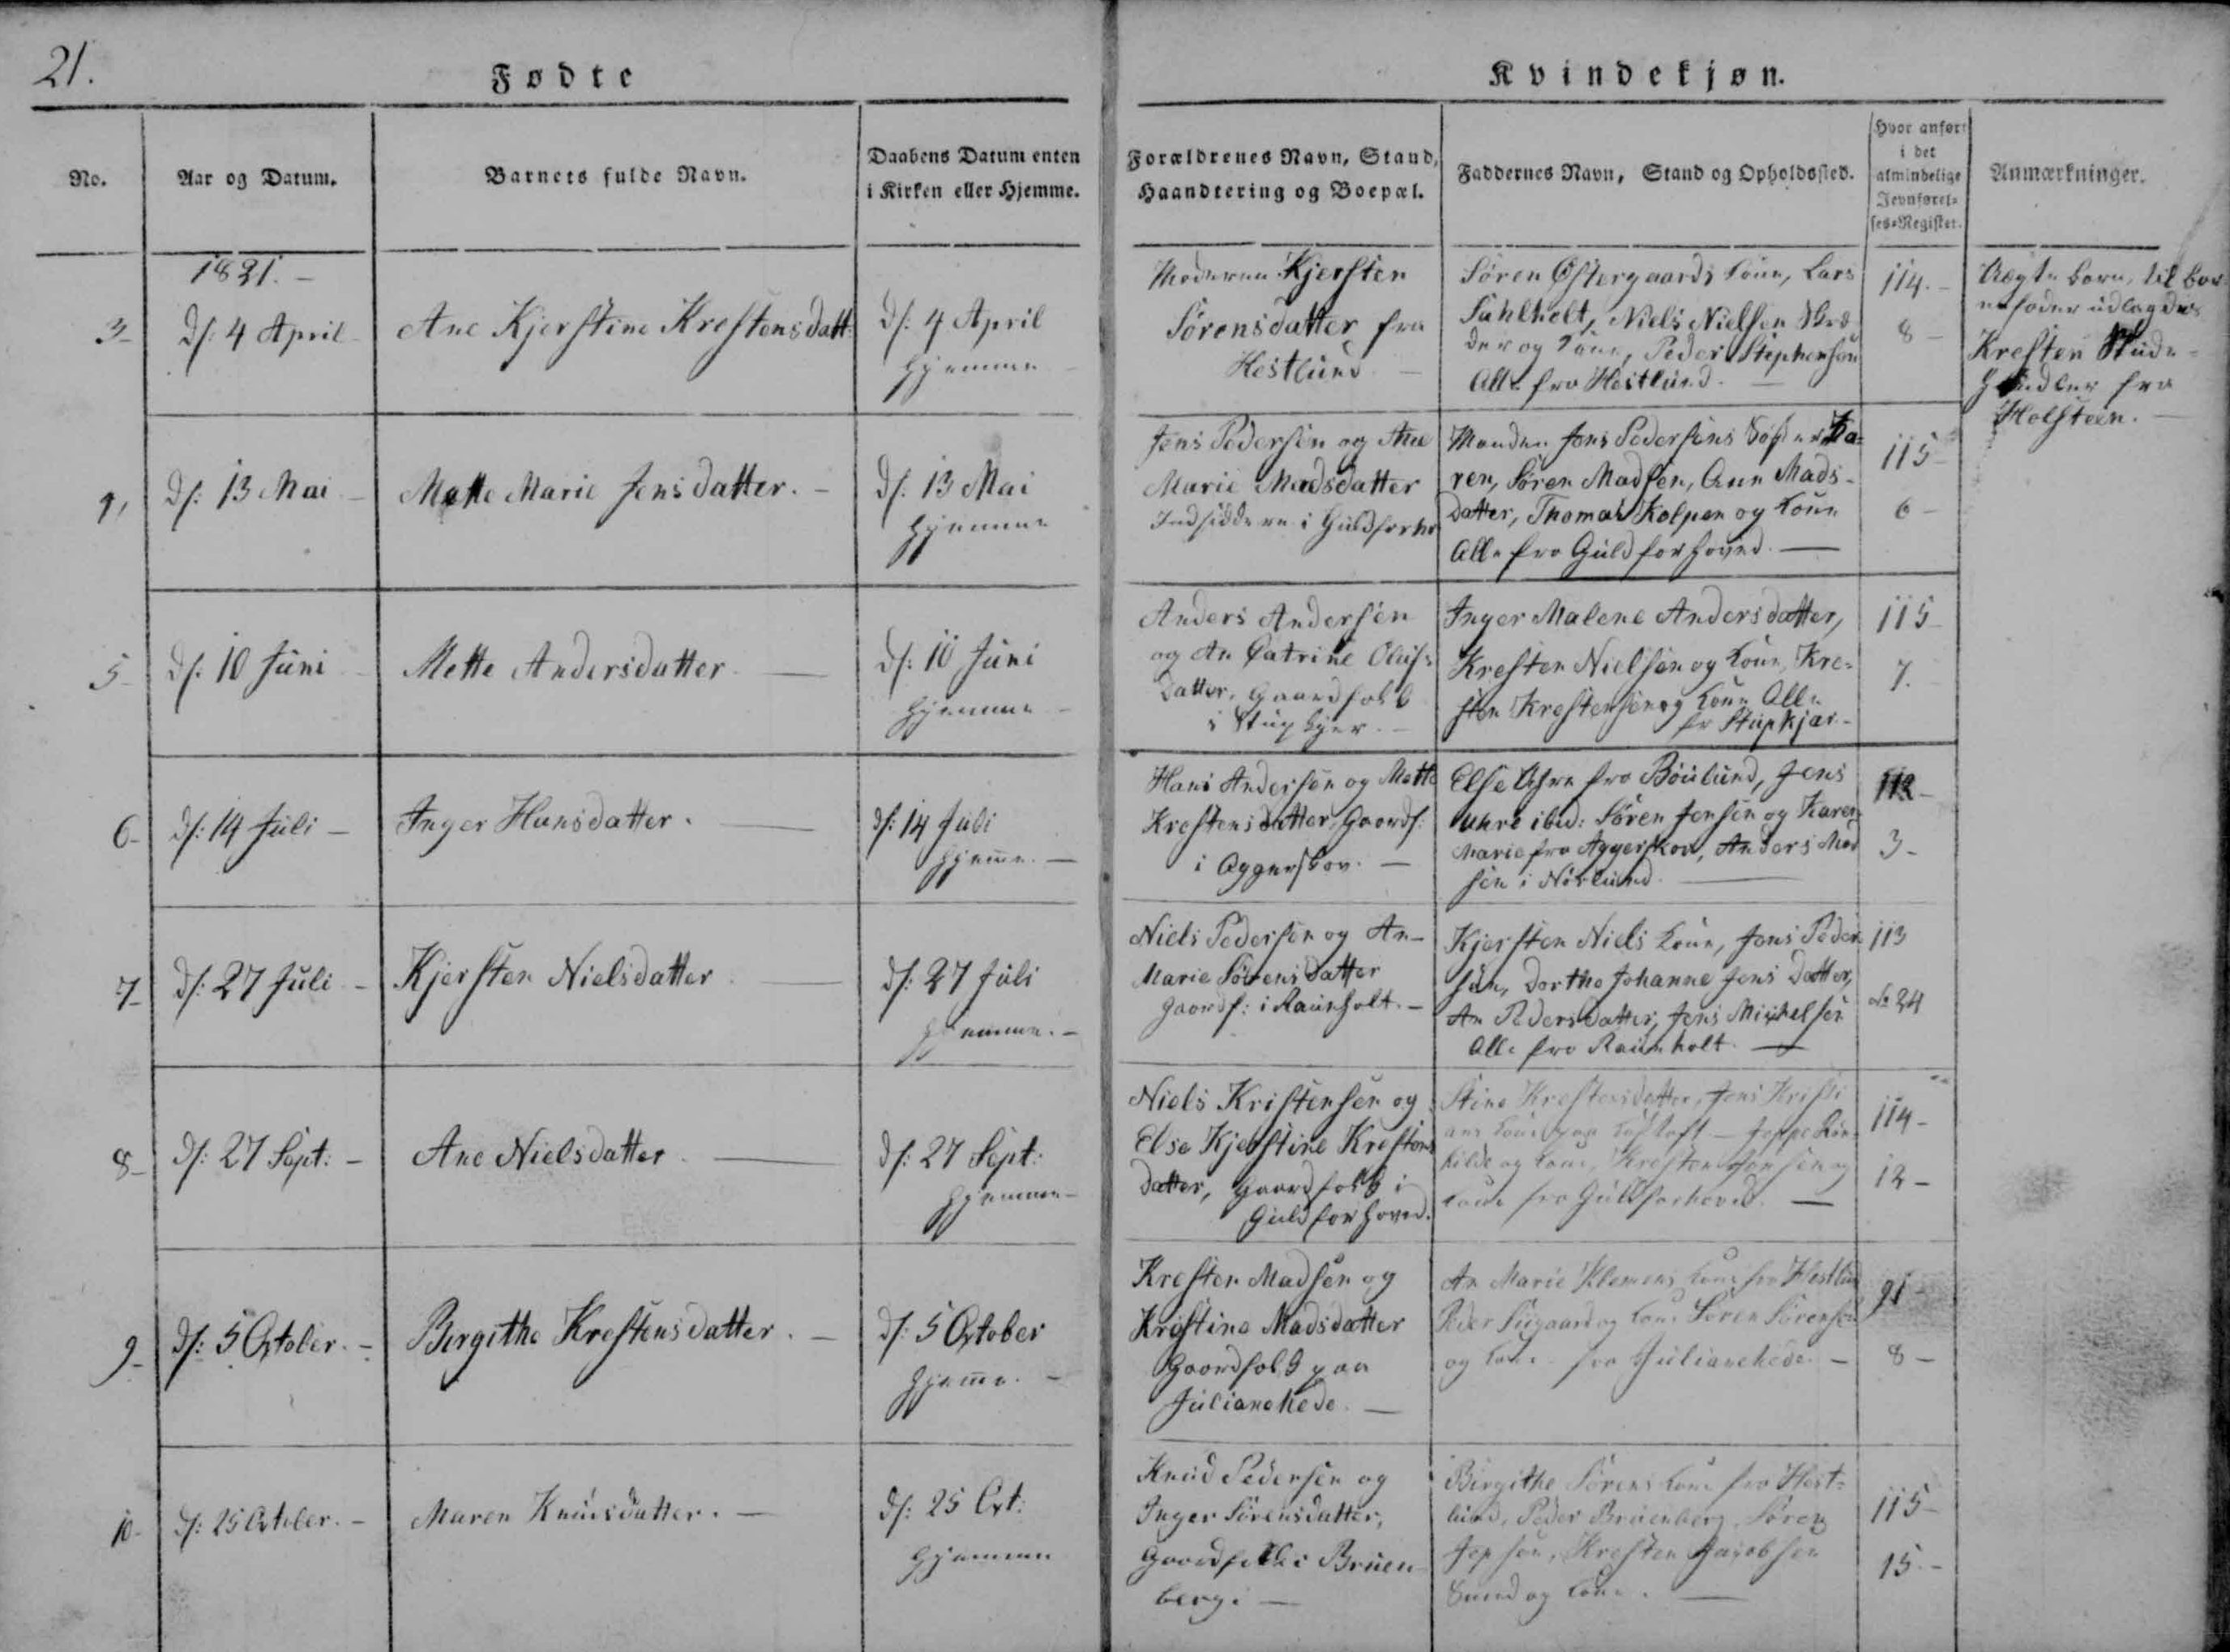 21.
Fødte
Kvindekjøn.
No.
Aar og Datum.
Barnets fulde Navn.
Daabens Datum enten
i Kirken eller Hjemme.
Forældrenes Navn, Stand,
Haandtering og Boepæl.
Faddernes Navn, Stand og Opholdssted.
Hvor anført
i det
almindelige
Jevnførel=
ses=Register.
Anmærkninger.
1821.
3
d: 4 April
Ane Kjerstine Krestensdatt:
d: 4 April
Hjemme
Moderen Kjersten
Sörensdatter fra
Hestlund
Sören Østergaards Kone, Lars
Niels Nielsen
og Kone, Peder Stephensen
Alle fra Hestlund.
114.
8
Kresten
fra
Holsteen.
d: 13 Mai
Mette Marie Jensdatter.
d: 13 Mai
Hjemme
Jens Pedersen og Ane
Marie Madsdatter
Indsiddere i
Jens Pedersens Søster Ka=
ren, Sören Madsen, Ane Mads-
datter, Thomas Kolpen og Kone
Alle fra Guldforhoved.
115
6
5
d: 10 Juni
Mette Andersdatter
d: 10 Juni
Hjemme
Anders Andersen
og An Catrine Oluf=
datter, Gaardfolk
i
Inger Malene Andersdatter,
Kresten Nielsen og Kone, Kre=
sten Krestensen og Kone Alle
115
7.
6
d: 14 Juli
Inger Hansdatter.
d: 14 Juli
Hjeme.
Hans Andersen og Mette
Krestensdatter Gaardf:
i Aggerskov.
Else fra Böilund, Jens
ibid: Sören Jensen og Karen
Marie fra Aggerskov, Anders Mad
sen i Nörlund.
112
3
7
d: 27 Juli
Kjersten Nielsdatter
d: 27 Juli
Hjemme.
Niels Pedersen og An
Marie Sörensdatter
Gaardf: i Raunholt.
Kjersten Niels Kone, Jens Peder
sen, Dorthe Johanne Jens Datter,
An Pedersdatter, Jens Michelsen
Alle fra Raunholt.
113
24
8
d: 27 Sept:
Ane Nielsdatter
d: 27 Sept:
Hjemme
Niels Kristensen og
Else Kjerstine Krestens
datter, Gaardfolk i
Guldforhoved.
Stine Krestensdatter, Jens Kristi
og Kone, Kresten Jensen og
Kone fra Guldforhoved.
114
12
9
d: 5 October.
Birgithe Krestensdatter.
d: 5 October
Hjeme.
Kresten Madsen og
Kristine Madsdatter
Gaardfolk paa
Julianehede.
An Marie Klemens Kone fra Hestlund
Peder og Kone Sören Sörensen
og Kone fra Julianehede.
91
8
10
d: 25 October.
Maren Knudsdatter.
d: 25 Oct:
Hjemme
Knud Pedersen og
Inger Sörensdatter,
Gaardfolk i Bruen
berg.
Birgithe Sörens Kone fra Hest=
lund, Peder Bruenberg, Sören
Jepsen, Kresten Jacobsen
og Kone.
115
15